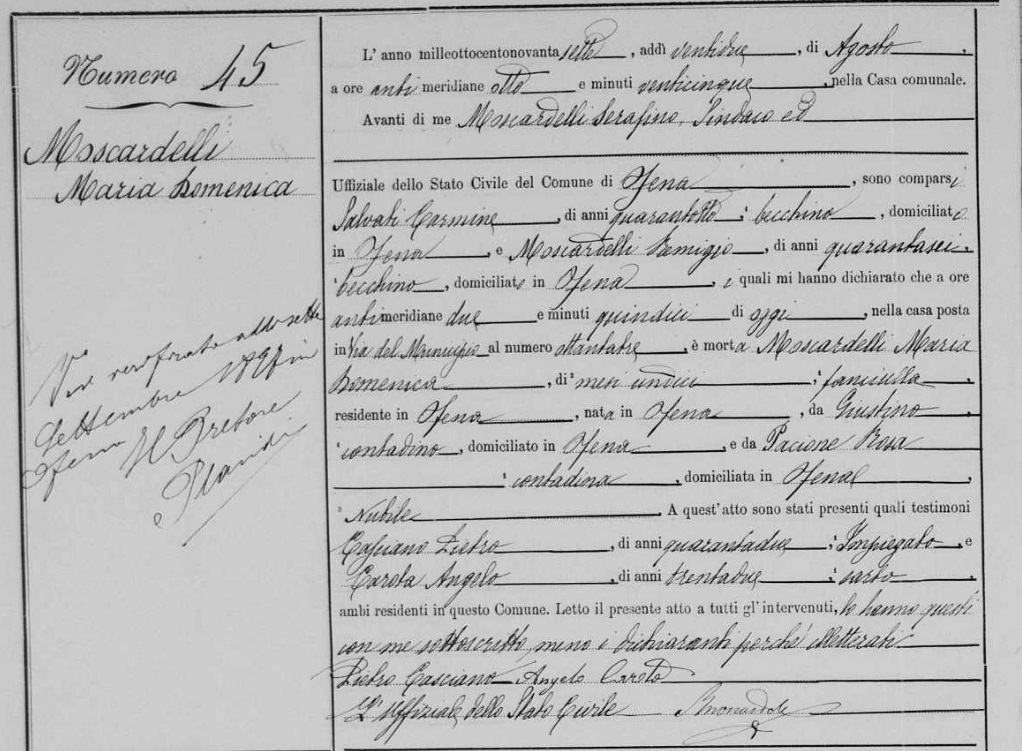 Numero 45
Moscardelli
Maria Domenica
Visto verificato addì sette
Settembre 1897 in
Ofena Il Pretore
L'anno milleottocentonovantasette, addì ventidue, di Agosto,
a ore anti meridiane otto e minuti venticinque, nella Casa comunale.
Avanti di me Moscardelli Serafino, Sindaco ed
Uffiziale dello Stato Civile del Comune di Ofena, sono comparsi
Salvati Carmine, di anni quarantotto, becchino, domiciliato
in Ofena, e Moscardelli Remigio, di anni quarantasei,
becchino, domiciliato in Ofena, i quali mi hanno dichiarato che a ore
antimeridiane due e minuti quindici di oggi, nella casa posta
in Via del Municipio al numero ottantatre, è morta Moscardelli Maria
Domenica, di mesi undici, fanciulla,
residente in Ofena, nata in Ofena, da Giustino,
contadino, domiciliato in Ofena, e da Pacione Rosa
contadina, domiciliata in Ofena,
Nubile. A quest'atto sono stati presenti quali testimoni
Casciano Pietro, di anni quarantadue, Impiegato, e
Carota Angelo, di anni trentadue, sarto,
ambi residenti in questo Comune. Letto il presente atto a tutti gl'intervenuti, lo hanno questi
con me sottoscritto, meno i dichiaranti perché illetterati
Pietro Casciano Angelo Carota
L'Uffiziale dello Stato Civile